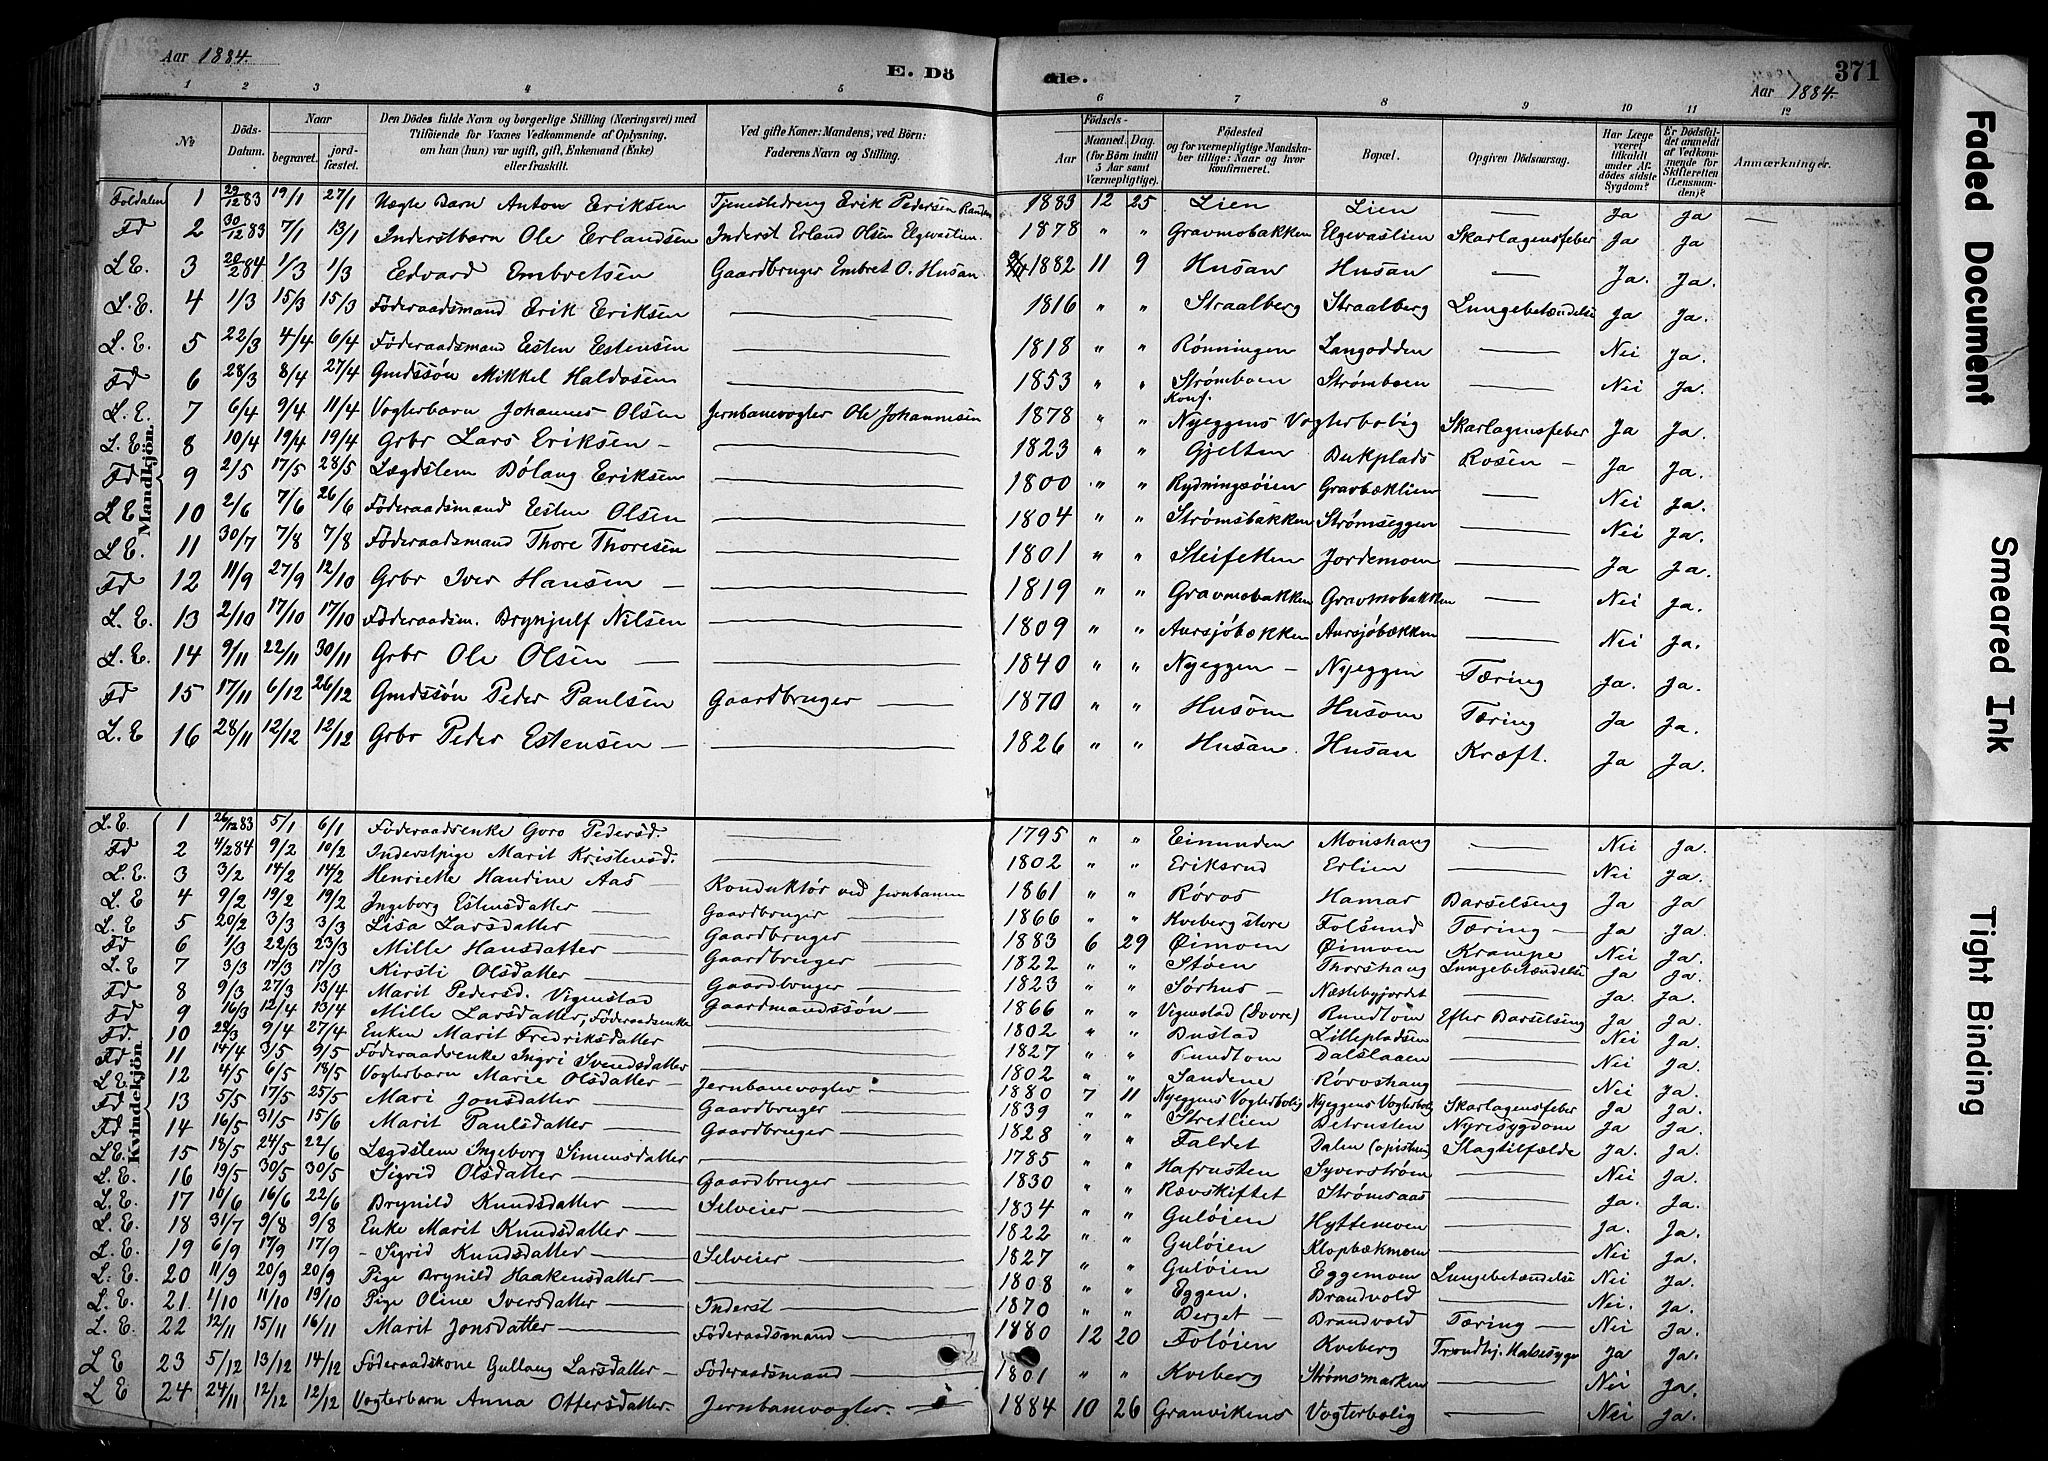 Aar 1884.
E. Döde.
371
Aar 1884.
1 2 3 4 5 6 7 8 9 10 11 12
№ Döds-Datum. Naar begravet. jord-fæstet. Den Dödes fulde Navn og borgerlige Stilling (Næringsvei) med Tilföiende for Voxnes Vedkommende af Oplysning, om han (hun) var ugift, gift, Enkemand (Enke) eller fraskilt. Ved gifte Koner: Mandens, ved Börn: Faderens Navn og Stilling. Födsels-Aar Maaned. Dag. (for Börn indtil 5 Aar samt Værnepligtige). Födested og for værnepligtige Mandskaber tillige: Naar og hvor konfirmeret. Bopæl. Opgiven Dödsaarsag. Har Læge været tilkaldt under Afdödes sidste Sygdom? Er Dödsfaldet anmeldt af Vedkommende for Skifteretten (Lensmanden)? Anmærkninger.
Mandkjön.
Foldalen 1 29/12 83 19/1 27/1 Uægte Barn Anton Eriksen Tjenestedreng Erik Pedersen 1883 12 25 Lien Lien — Ja Ja —
Fd 2 30/12 83 7/1 13/1 Inderstbarn Ole Erlandsen Inderst Erland Olsen Elgevaslien 1878 " " Gravmobakken Elgevaslien Skarlagensfeber Ja Ja
L.E. 3 20/2 84 1/3 1/3 Edvard Embretsen Gaardbruger Embret O. Husan 1882 11 9 Husan Husan — Ja. Ja.
L.E. 4 1/3 15/3 15/3 Föderaadsmand Erik Eriksen — 1816 " " Straalberg Straalberg Lungebetændelse Ja Ja.
L.E. 5 22/3 4/4 6/4 Föderaadsmand Esten Estensen — 1818 " " Rønningen Langodden — Nei Ja.
Fd 6 28/3 8/4 27/4 Gmdssön Mikkel Haldosen — 1853 " " Strømboen Konf. Strømboen — Nei Ja.
L.E. 7 6/4 9/4 11/4 Vogterbarn Johannes Olsen Jernbanevogter Ole Johannesen 1878 " " Nyeggens Vogterbolig Skarlagensfeber Ja Ja.
L.E. 8 10/4 19/4 19/4 Grbr Lars Eriksen — — 1823 " " Gjelten Bukplads Rosen — Ja Ja.
Fd 9 2/5 17/5 28/5 Lægdslem Bólang Eriksen — 1800 " " Rydningsøien Gravbæklien — Nei Ja.
L E 10 2/6 7/6 26/6 Föderaadsmand Esten Olsen — 1804 " " Strømsbakken Strømseggen — Nei Ja.
L E. 11 30/7 7/8 7/8 Föderaadsmand Thore Thoresen — 1801 " " Steifetten Jordemoen — Ja Ja.
Fd 12 11/9 27/9 12/10 Grbr Iver Hansen — — 1819 " " Gravmobakken Gravmobakken — Nei Ja.
L.E. 13 2/10 17/10 17/10 Föderaadsm. Brynjulf Nilsen — 1809 " " Aursjöbækken Aursjöbækken — Nei Ja.
L.E. 14 9/11 22/11 30/11 Grbr Ole Olsen — — 1840 " " Nyeggen — Nyeggen Tæring Ja. Ja.
Fd 15 17/11 6/12 26/12 Gmdssön Peder Paulsen Gaardbruger — 1870 " " Husom Husom Tæring Ja Ja.
L.E 16 28/11 12/12 12/12 Grbr Peder Estensen — — 1826 " " Husan. Husan Kræft. Ja Ja.
Kvindekjön.
L.E. 1 26/12 83 5/1 6/1 Föderaadsenke Goro Pedersd. — 1795 " " Eimunden Monshaug — Nei Ja.
Fd 2 4/2 84 9/2 10/2 Inderstpige Marit Kristensd. — 1802 " " Eriksrud Erlien — Nei Ja.
L.E. 3 3/2 14/2 14/2 Henriette Handine Aas — Konduktör ved Jernbanen 1861 " " Røros Hamar Barselseng Ja Ja
L.E 4 9/2 19/2 19/2 Ingeborg Estensdatter — Gaardbruger — 1866 " " Kveberg store Folsund Tæring — Ja Ja.
L.E. 5 20/2 3/3 3/3 Lisa Larsdatter — Gaardbruger — 1883 6 29 Øimoen Øimoen Krampe Nei Ja.
Fd 6 1/3 22/3 23/3 Mille Hansdatter — Gaardbruger — 1822 " " Støen Thorshaug Lungebetændelse Ja Ja.
L.E. 7 3/3 17/3 17/3 Kirsti Olsdatter — Gaardbruger — 1823 " " Sørhus — Næstebyjordet — Ja. Ja.
Fd 8 9/3 27/3 13/4 Marit Pedersd. Vigenstad Gaardmandssön — 1866 " " Vigenstad (Dovre) Rundtom Efter Barselseng Ja Ja
Fd 9 16/3 12/4 13/4 Mille Larsdatter, Föderaadsenke — 1802 " " Bustad Lillepladsen — Nei Ja.
Fd. 10 22/3 9/4 27/4 Enken Marit Fredriksdatter — 1827 " " Rundtom Dalslaaen — Nei Ja.
Fd 11 14/4 3/5 9/5 Föderaadsenke Ingri Svendsdatter — 1802 " " Sandene Røroshaug — Nei Ja.
L E 12 4/5 6/5 18/5 Vogterbarn Marie Olsdatter — Jernbanevogter — 1880 7 11 Nyeggens Vogterbolig Nyeggens Vogterbolig Skarlagensfeber Ja Ja.
Fd 13 5/5 17/5 25/5 Mari Jonsdatter — Gaardbruger — 1839 " " Stretlien Betrusten Nyresygdom Ja Ja
Fd 14 16/5 31/5 15/6 Marit Paulsdatter — Gaardbruger — 1828 " " Faldet Dalen Slagtilfælde Ja. Ja.
L E. 15 18/5 24/5 22/6 Lægdslem Ingeborg Simensdatter — 1785 " " Hafrusten Syverstrøm — Nei Ja.
L.E. 16 19/5 30/5 30/5 Sigrid Olsdatter — Gaardbruger — 1830 " " Rævskiftet Strømsaas — Ja. Ja.
L.E. 17 10/6 16/6 22/6 Brynild Knudsdatter — Selveier — 1834 " " Guløien Hyttemoen — Ja. Ja.
L.E. 18 31/7 9/8 9/8 Enke Marit Knudsdatter — — 1822 " " Guløien Klopbækmoen — Nei Ja.
L.E. 19 6/9 17/9 17/9 - Sigrid Knudsdatter — Selveier — 1827 " " Guløien Eggemoen Lungebetændelse Nei Ja.
L.E. 20 11/9 20/9 20/9 Pige Brynild Haakensdatter — — 1808 " " Eggen. Brandvold — Nei. Ja.
L.E. 21 1/10 11/10 19/10 Pige Oline Iversdatter — Inderst — 1870 " " Berget — Brandvold Tæring — Nei Ja.
L.E. 22 12/11 15/11 16/11 Marit Jonsdatter — Föderaadsmand — 1880 12 20 Foløien Kveberg Trondhj. Halsesyge Ja Ja.
L E 23 5/12 13/12 14/12 Föderaadskone Gullaug Larsdatter — Föderaadsmand — 1801 " " Kveberg Strømsmarken — Nei Ja.
L E 24 24/11 12/12 12/12 Vogterbarn Anna Ottersdatter — Jernbanevogter. — 1884 10 26 Granvikens Vogterbolig — Nei Ja.
Faded Document
Smeared Ink
Tight Binding